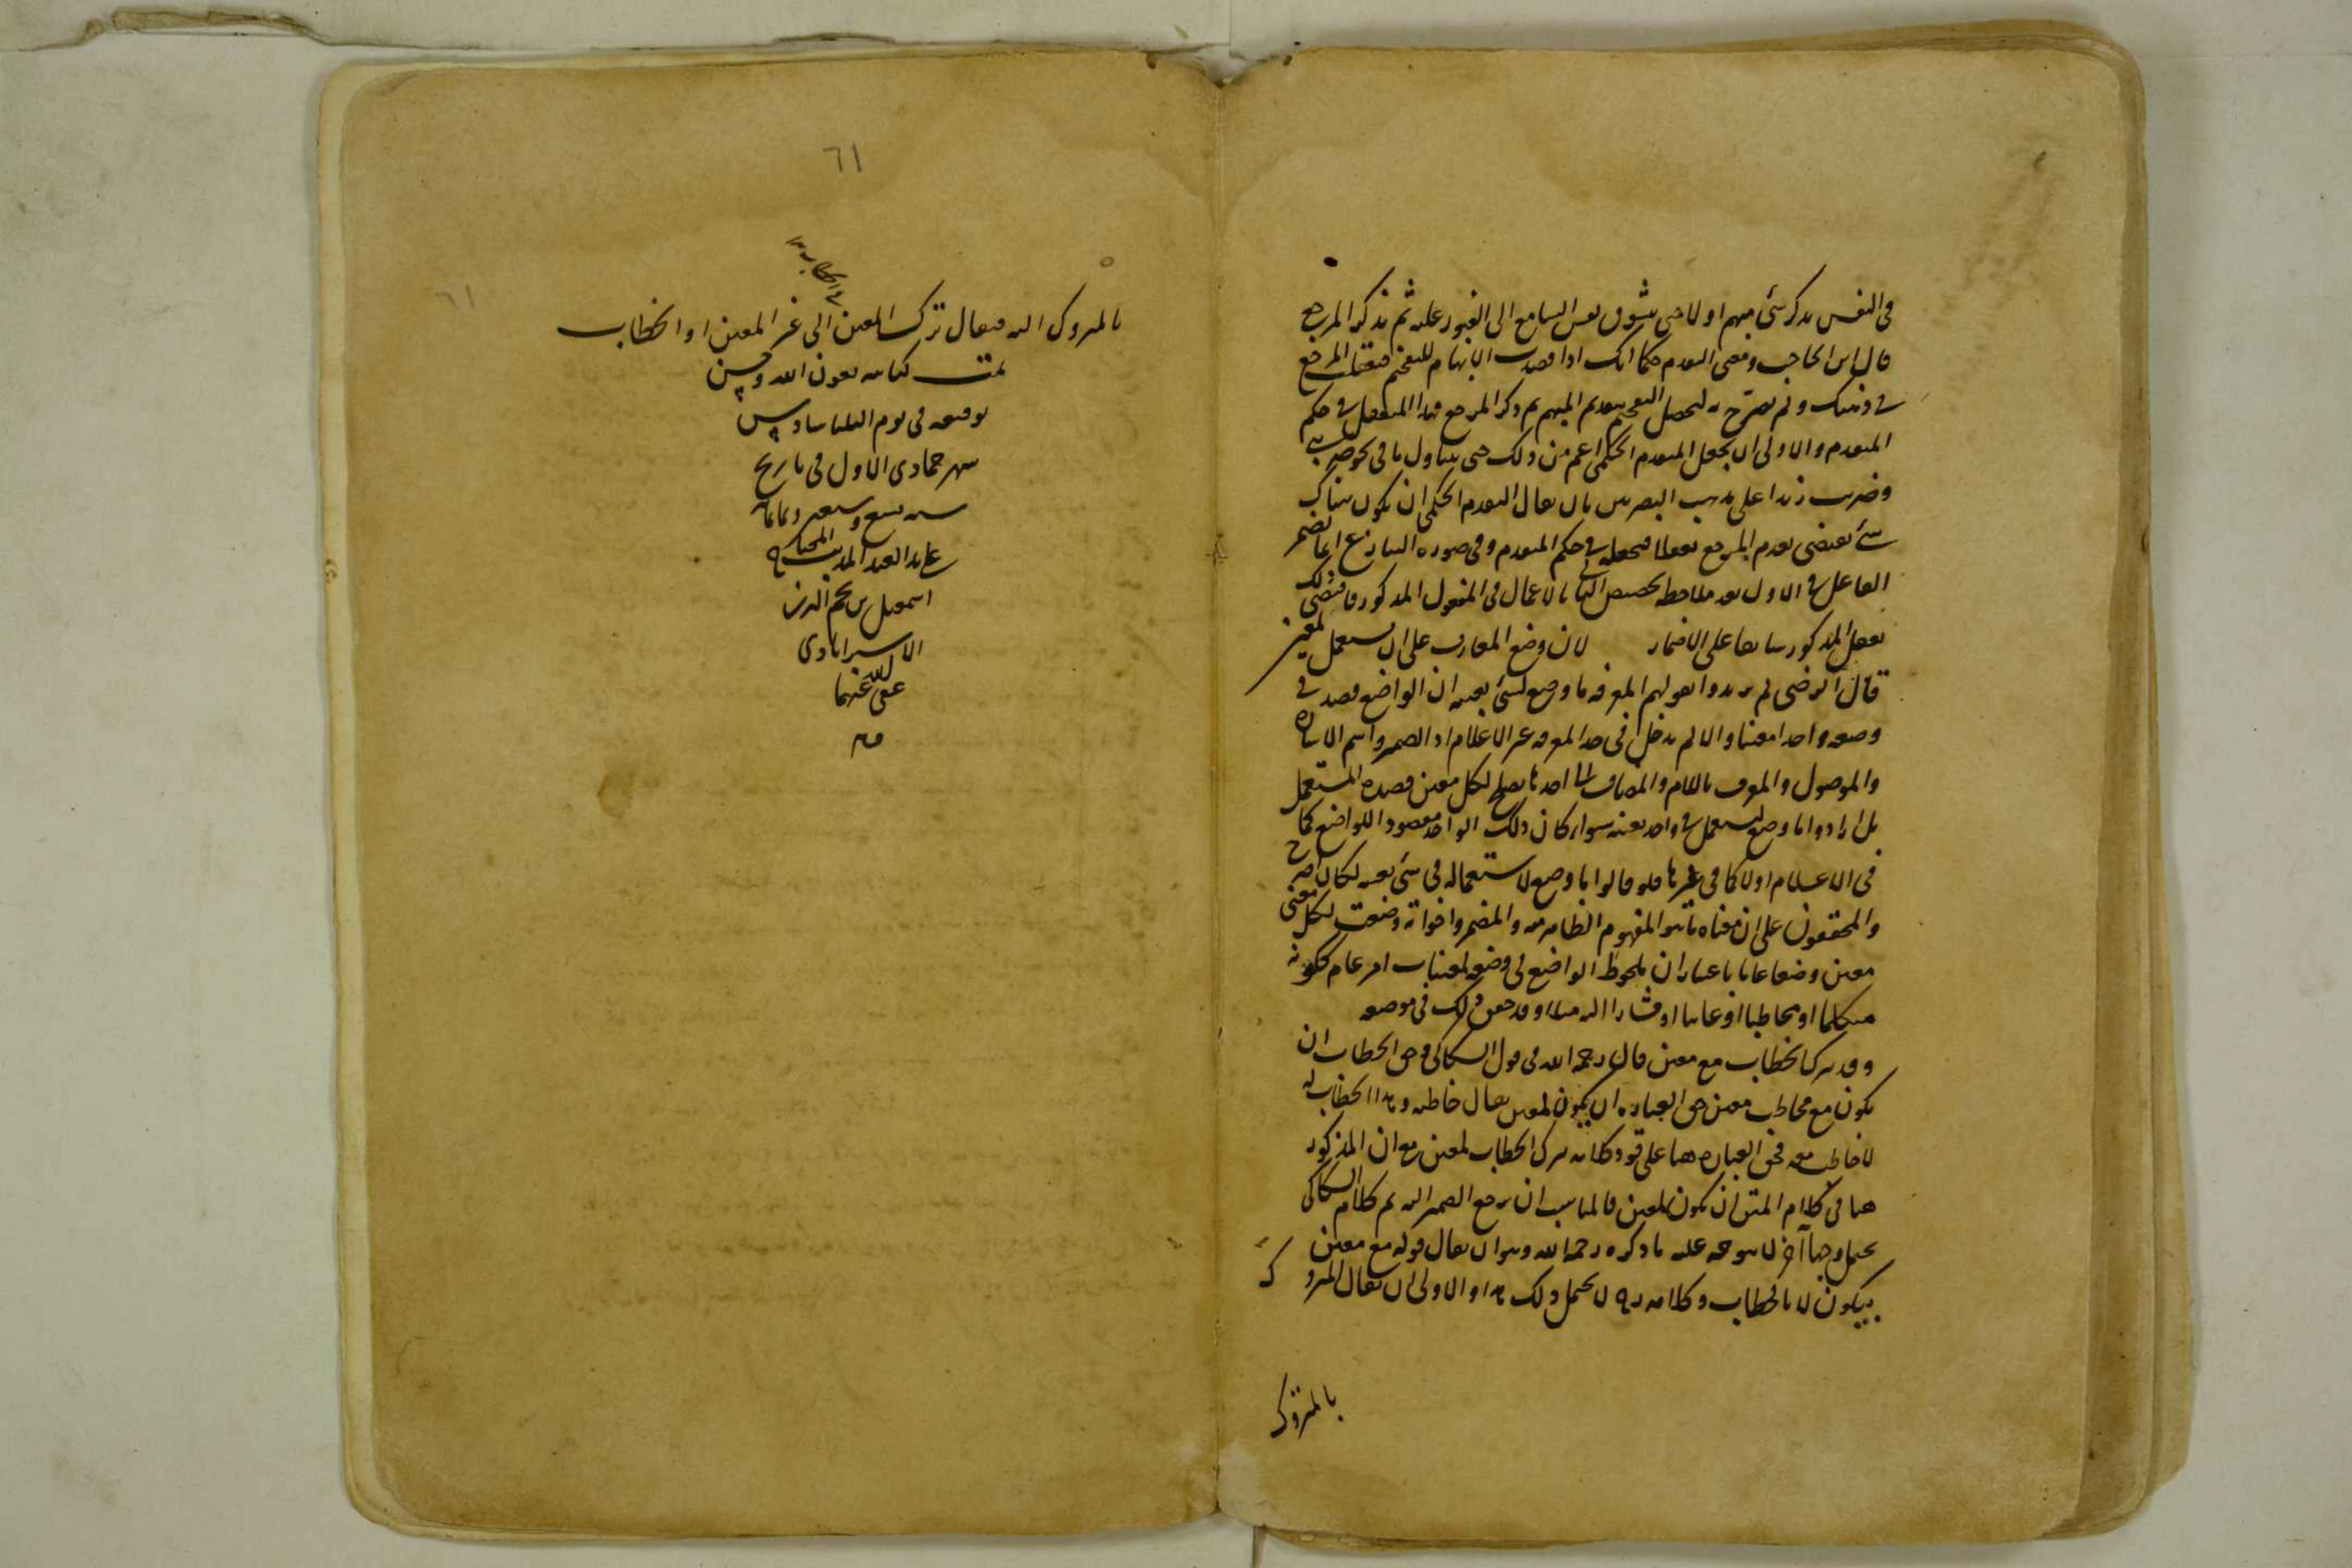 في النفس بذكر شئ مبهم اولا حتى يتشوق نفس السامع الى العثور عليه ثم بذكر المرجع
قال ابن الحاجب ومعنى التقدم حكما انك اذا قصدت الابهام للتفخيم فتعقلت المرجع
في ذهنك ولم تصرح به ليحصل التفخيم بتقديم المبهم ثم ذكر المرجع فهذا المتعقل في حكم
المتقدم والاولى ان يجعل المتقدم الحكمي اعم من ذلك حتى يتناول ما في نحو ضربني
وضربت زيدا على مذهب البصريين بان يقال التقدم الحكمي ان يكون هناك
شئ يقتضى تقدم المرجع تعقلا فجعله في حكم المتقدم وفي صورة التنازع انما يضمر
الفاعل في الاول بعد ملاحظة تخصيص الثاني بالاعمال في المفعول المذكور فاقتضى ذلك
تعقل المذكور سابقا على الاضمار لان وضع المعارف على ان يستعمل لمعين
قال الرضى لم يريدوا بقولهم المعرفة ما وضع لشئ بعينه ان الواضع قصد في
وضعه واحدا معينا والا لم يدخل في حد المعرفة غير الاعلام اذ الضمير واسم الاشارة
والموصول والمعرف باللام والمضاف الى احدها يصلح لكل معين قصده المستعمل
بل ارادوا ما وضع ليستعمل في واحد بعينه سواء كان ذلك الواحد مقصودا للواضع كما
في الاعلام اولا كما في غيرها فلو قالوا ما وضع لاستعماله في شئ بعينه لكان اصرح
والمحققون على ان معناه ما هو المفهوم الظاهر منه والمضمر واخواته وضعت لكل معنى
معين وضعا عاما باعتبار ان ملحوظ الواضع في وضعه لمعينات امر عام ككونه
متكلما او مخاطبا او غائبا او مشارا اليه مثلا وقد حقق ذلك في موضعه
وقد يترك الخطاب مع معين قال رحمه الله في قول السكاكي وحق الخطاب ان
يكون مع مخاطب معين حق العبارة ان يكون لمعين يقال خاطبه وهذا الخطاب له
لا خاطب معه فحق العبارة ههنا على قود كلامه يترك الخطاب لمعين مع ان المذكور
ههنا في كلام المتن ان يكون لمعين فالمناسب ان يرجع الضمير اليه ثم كلام السكاكي
يحتمل وجها آخر لا يتوجه عليه ما ذكره رحمه الله وهو ان يقال قوله مع معين
بيكون لا بالخطاب وكلامه ره لا يحتمل ذلك هذا والاولى ان يقال المتروك
بالمتروك
٦١
بالمتروك اليه فيقال ترك المعين الى غير المعين او الخطاب
تمت كتابته بعون الله وحسن
توفيقه في يوم الثلثا سادس
شهر جمادى الاول في تاريخ
سنه تسع وسبعين وثمانمائه
على يد العبد المذنب المحتاج
اسمعيل بن نجم الدين
الاسترابادي
عفى الله عنهما